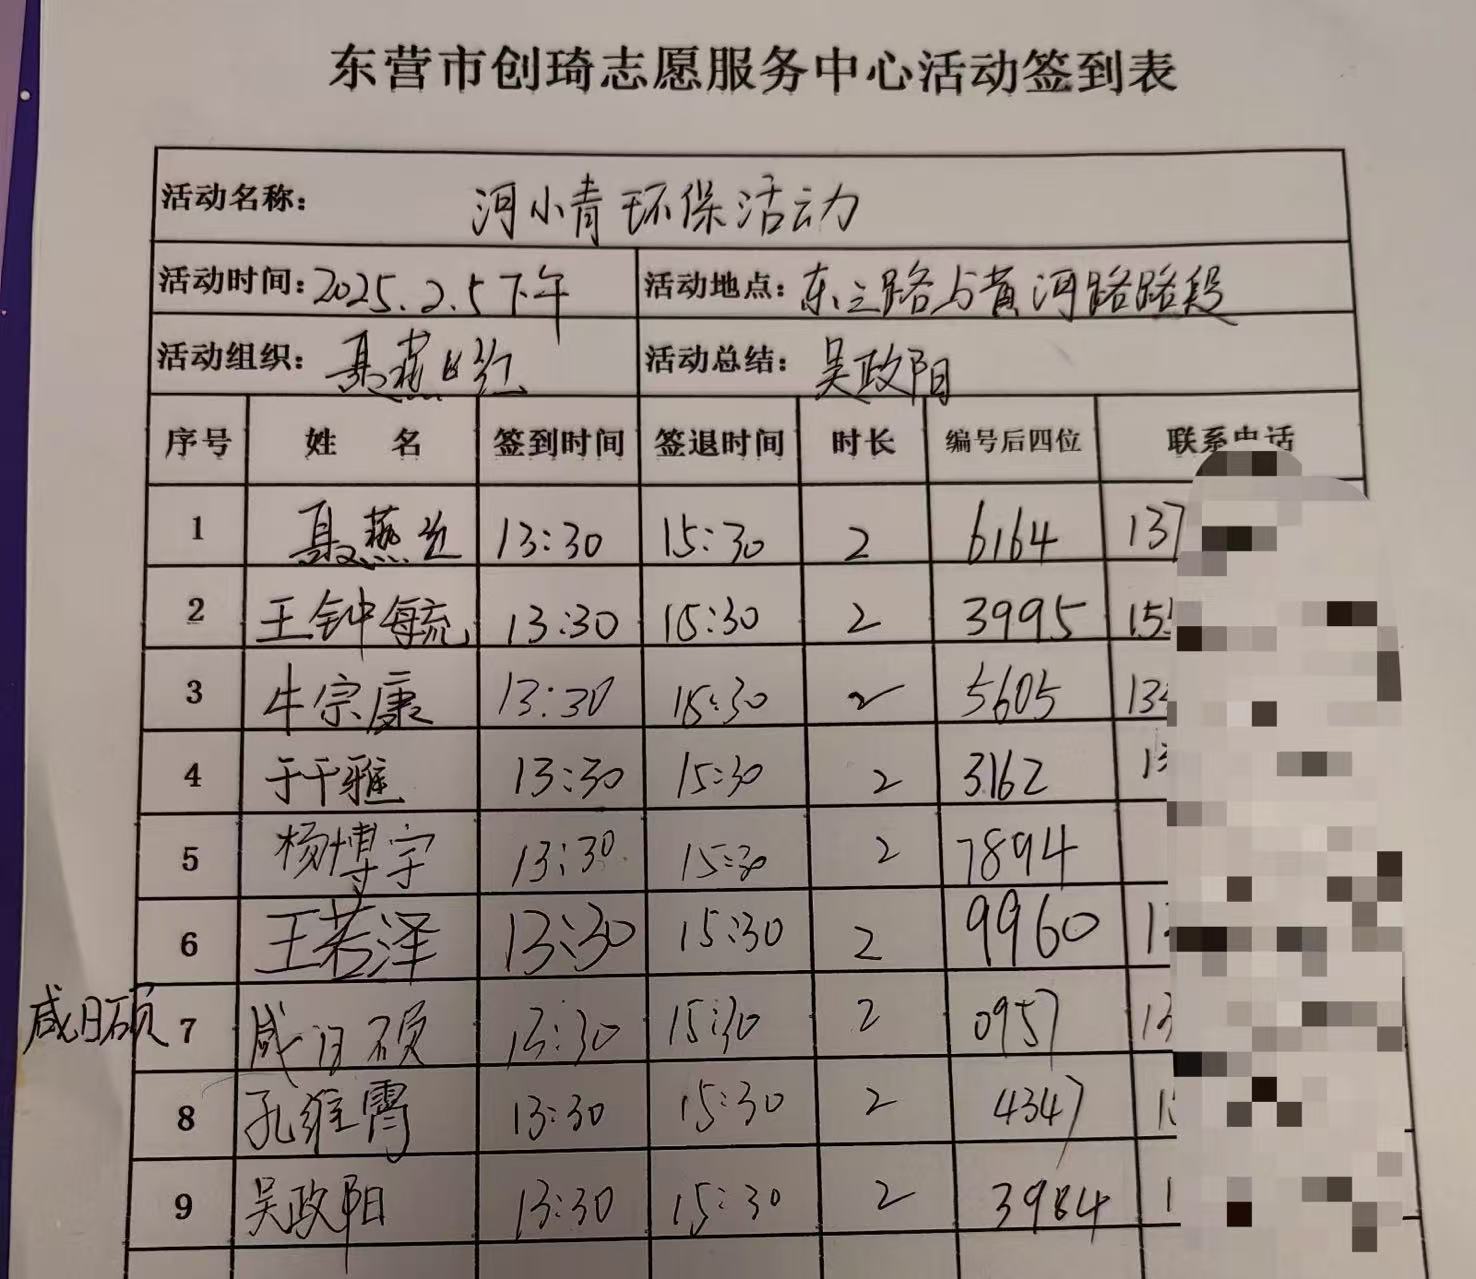 东营市创琦志愿服务中心活动签到表
活动名称： 河小青环保活动
活动时间：2025.2.5下午 活动地点：东三路与黄河路路段
活动组织： 聂燕 活动总结： 吴政阳
序号 姓 名 签到时间 签退时间 时长 编号后四位 联系电话
1 聂燕 13:30 15:30 2 6164 137
2 王钟毓 13:30 15:30 2 3995 155
3 牛宗康 13:30 15:30 2 5605 13
4 于千雅 13:30 15:30 2 3162 13
5 杨博宇 13:30 15:30 2 7894
6 王若泽 13:30 15:30 2 9960 1
咸日硕 7 咸日硕 13:30 15:30 2 0957 13
8 孔维霄 13:30 15:30 2 4347 1
9 吴政阳 13:30 15:30 2 3984 1